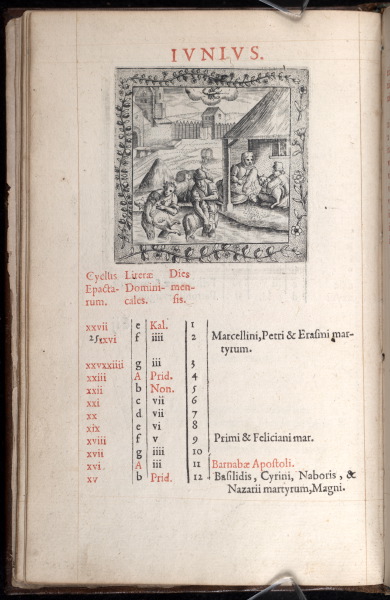 IVNIVS.
Cyclus Literæ Dies
Epacta- Domini- men-
rum. cales. sis.
xxvii e Kal. 1
25.xxvi f iiii 2 Marcellini, Petri & Erasmi mar-
tyrum.
xxvxxiiii g iii 3
xxiii A Prid. 4
xxii b Non. 5
xxi c vii 6
xx d vii 7
xix e vi 8
xviii f v 9 Primi & Feliciani mar.
xvii g iiii 10
xvi A iii 11 Barnabæ Apostoli.
xv b Prid. 12 Basilidis, Cyrini, Naboris, &
Nazarii martyrum, Magni.